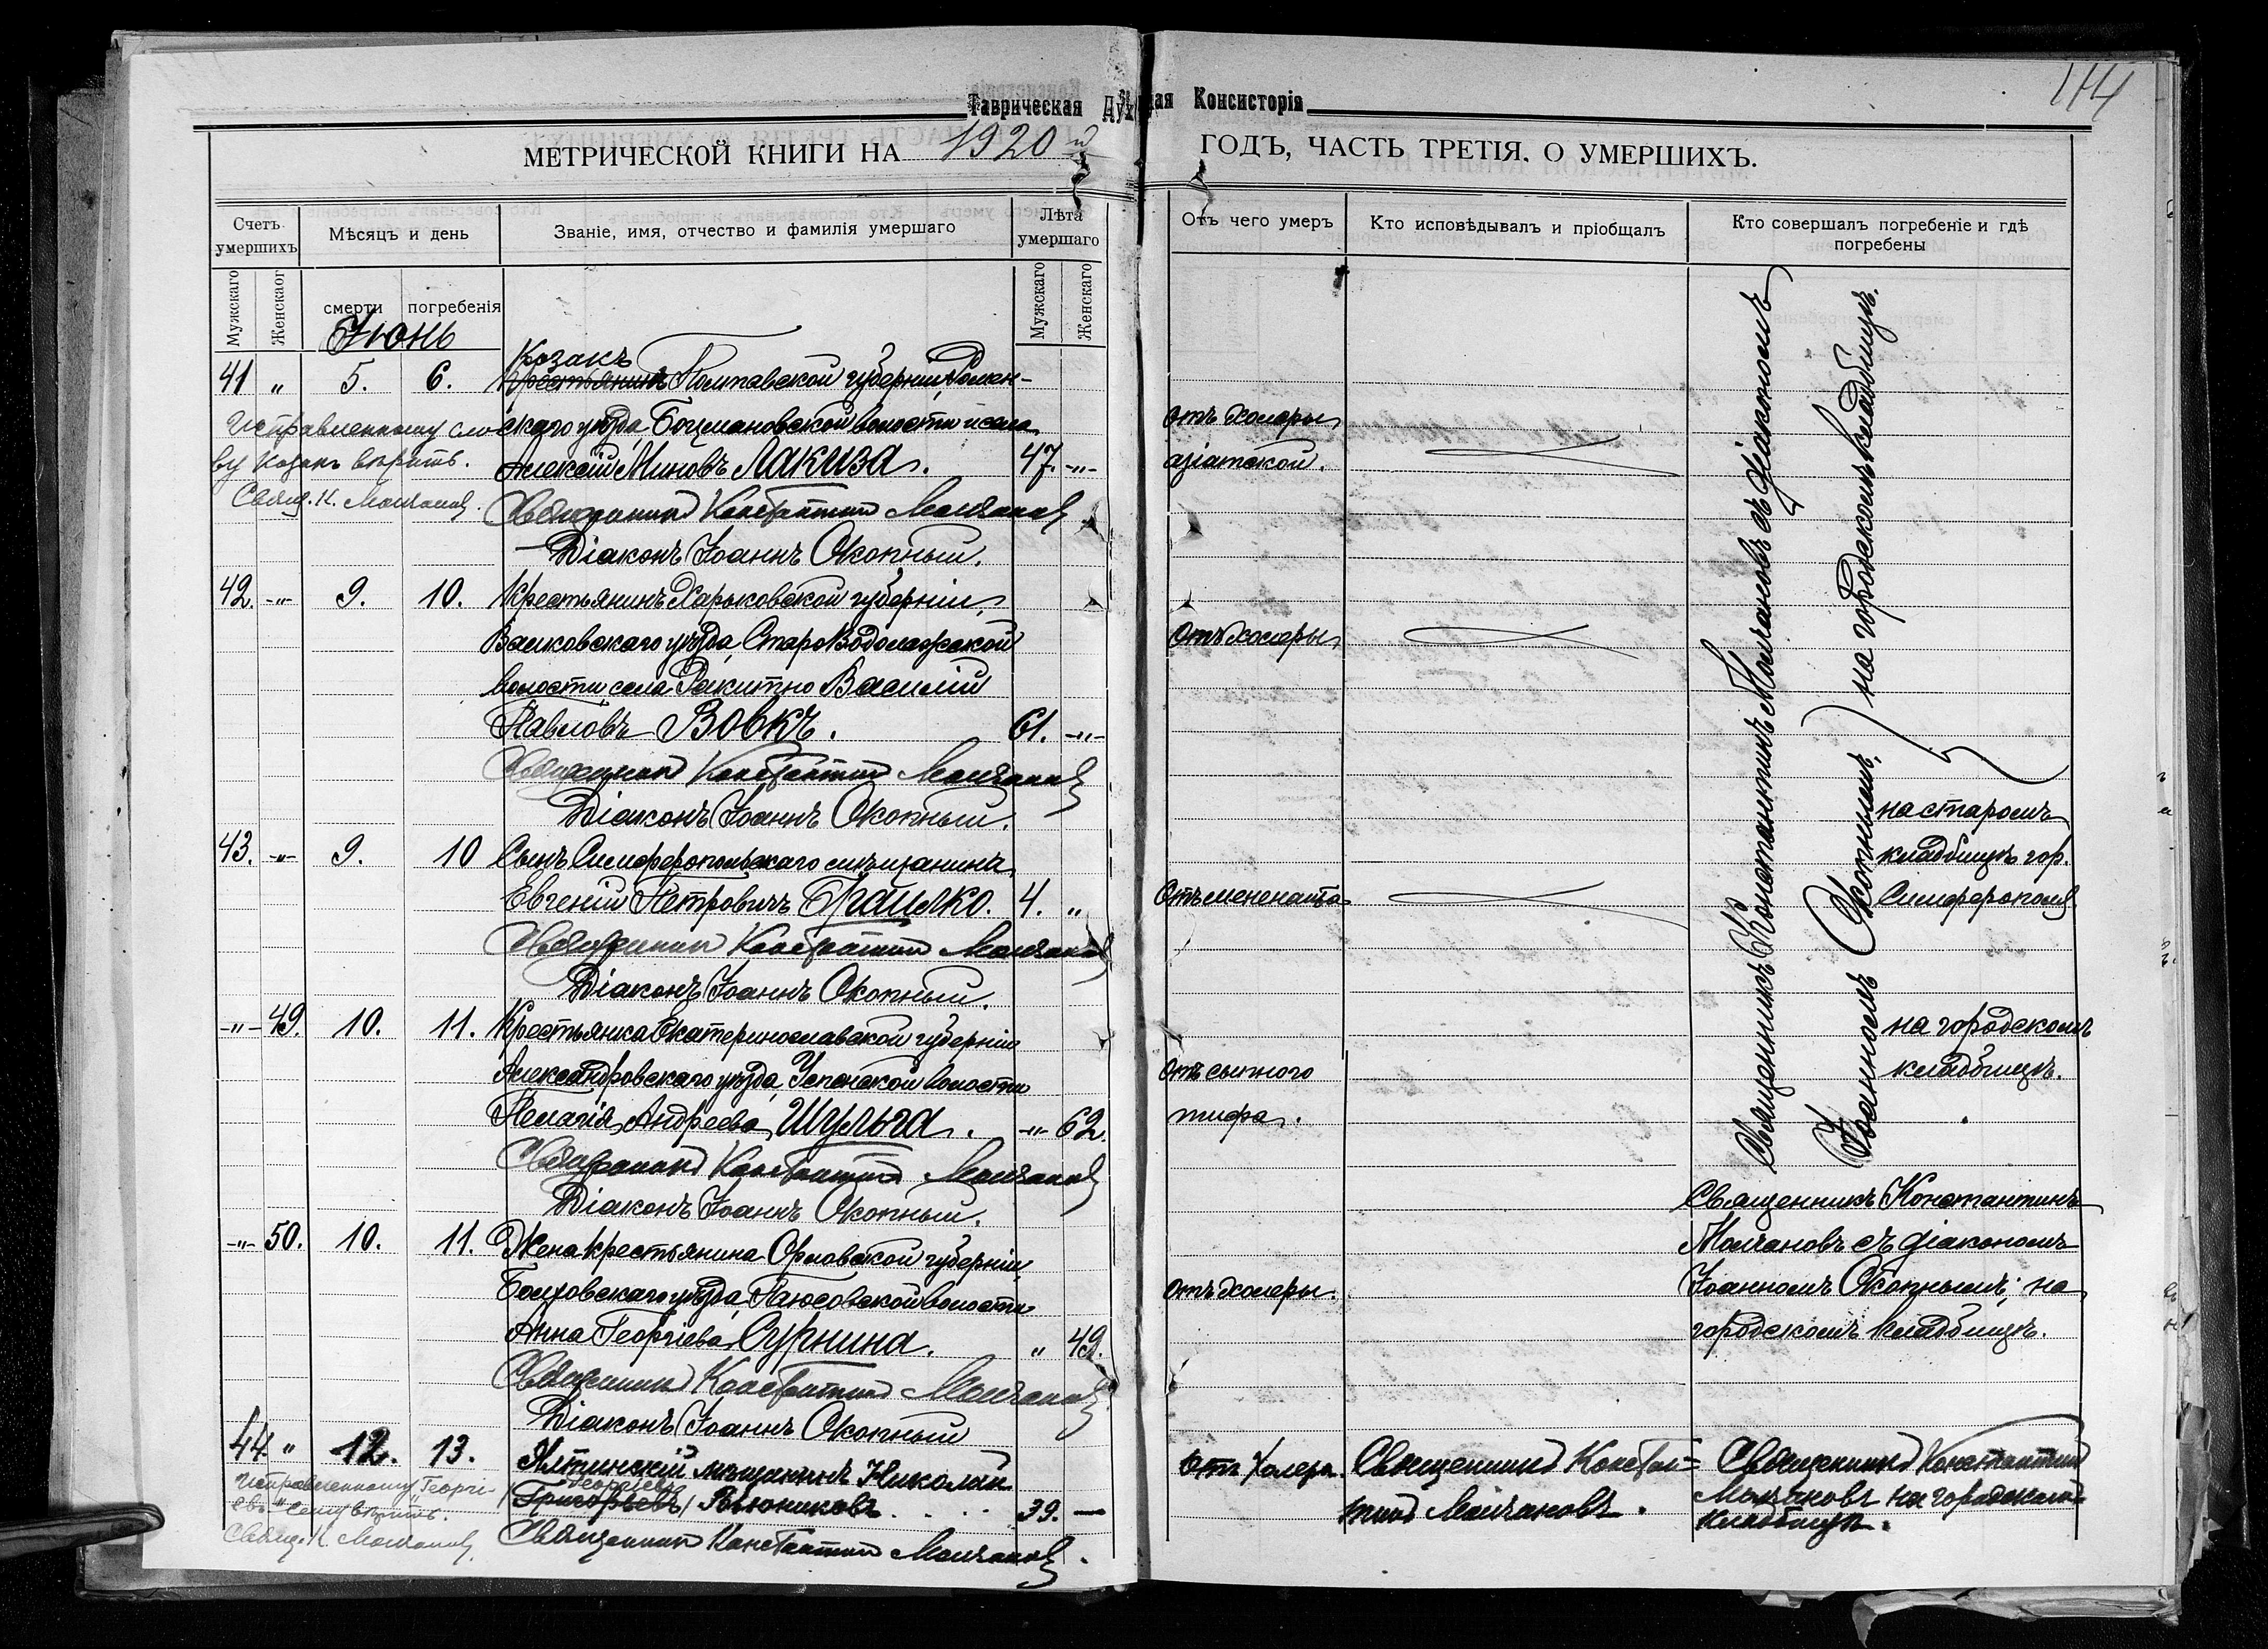 Таврическая Духовная Консисторія
114
МЕТРИЧЕСКОЙ КНИГИ НА 1920й ГОДЪ, ЧАСТЬ ТРЕТІЯ, О УМЕРШИХЪ.
Счетъ умершихъ
Мѣсяцъ и день
Званіе, имя, отчество и фамилія умершаго
Лѣта умершаго
Отъ чего умеръ
Кто исповѣдывалъ и пріобщалъ
Кто совершалъ погребеніе и гдѣ погребены
Мужскаго
Женскаог
смерти
погребенія
Мужскаго
Женскаго
Іюнь
Козакъ
41 " 5. 6. Крестьянинъ Полтавской губерніи, Ромен-
скаго уѣзда, Боцмановской волости и села
Алексѣй Миновъ Лакиза. 47. -"-
Исправленному сло-
ву Козакъ вѣрить.
Свящ. К. Молчановъ
отъ холеры
азіатской.
Священникъ Константинъ Молчановъ
Діаконъ Іоаннъ Окопный.
42. -"- 9. 10. Крестьянинъ Харьковской губерніи,
Валковскаго уѣзда, СтароВодолажской
волости села Ракитно Василій
Павловъ Вовкъ. 61. -"-
Отъ холеры
Священникъ Константинъ Молчановъ
Діаконъ Іоаннъ Окопный.
43. -"- 9. 10 Сынъ Симферопольскаго мѣщанина
Евгеній Петровичъ 4. "
Отъ менингита
Священникъ Константинъ Молчановъ
Діаконъ Іоаннъ Окопный.
-"- 49. 10. 11. Крестьянка Екатеринославской губерніи
Александровскаго уѣзда, Успенской волости
Пелагія Андреева Шульга. -"- 62.
Отъ сыпного
тифа.
Священникъ Константинъ Молчановъ
Діаконъ Іоаннъ Окопный.
-"- 50. 10. 11. Жена крестьянина Орловской губерніи,
Болховскаго уѣзда, волости
Анна Георгіева Сурнина. " 49.
отъ холеры.
Священникъ Константинъ Молчановъ
Діаконъ Іоаннъ Окопный
44 " 12. 13. Ялтинскій мѣщанинъ Николай
Георгіевъ
Григорьевъ 39. —
Исправленному „Георгі-
евъ" сему вѣрить.
Свящ. К. Молчановъ
Священникъ Константинъ Молчановъ.
отъ холеры.
Священникъ Констан=
тинъ Молчановъ.
Священникъ Константинъ Молчановъ съ діакономъ
Іоанномъ Окопнымъ, на городскомъ кладбищѣ.
на старомъ
кладбищѣ гор.
Симферополя
на городскомъ
кладбищѣ.
Священникъ Константинъ
Молчановъ съ діакономъ
Іоанномъ Окопнымъ; на
городскомъ кладбищѣ.
Священникъ Константинъ
Молчановъ на городскомъ
кладбищѣ.